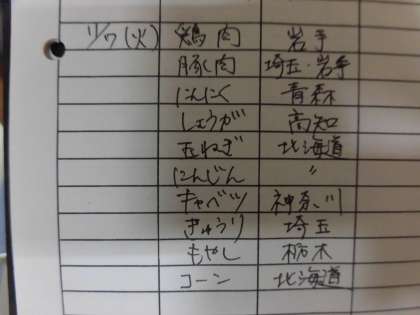 11/7(火) 鶏肉 岩手
豚肉 埼玉・岩手
にんにく 青森
しょうが 高知
玉ねぎ 北海道
にんじん 〃
キャベツ 神奈川
きゅうり 埼玉
もやし 栃木
コーン 北海道